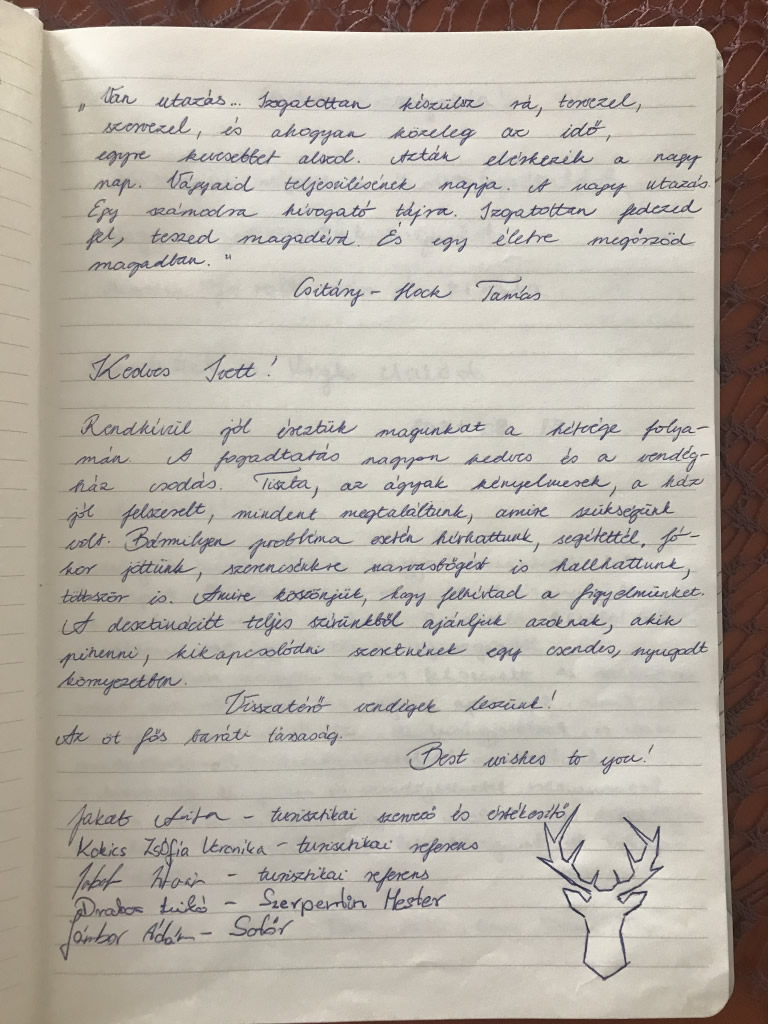 „Van utazás... Izgatottan készülsz rá, tervezel,
szervezel, és ahogyan közeleg az idő,
egyre kevesebbet alszol. Aztán elérkezik a nagy
nap. Vágyaid teljesülésének napja. A nagy utazás.
Egy számodra hívogató tájra. Izgatottan fedezed
fel, teszed magadévá. És egy életre megőrzöd
magadban."
Csitáry-Hock Tamás
Kedves Ivett!
Rendkívül jól éreztük magunkat a hétvége folya-
mán. A fogadtatás nagyon kedves és a vendég-
ház csodás. Tiszta, az ágyak kényelmesek, a ház
jól felszerelt, mindent megtaláltunk, amire szükségünk
volt. Bármilyen probléma esetén hívhattunk, segítettél. Jó-
kor jöttünk, szerencsénkre szarvasbőgést is hallhattunk,
többször is. Amire köszönjük, hogy felhívtad a figyelmünket.
A desztinációt teljes szívünkből ajánljuk azoknak, akik
pihenni, kikapcsolódni szeretnének egy csendes, nyugodt
környezetben.
Visszatérő vendégek leszünk!
Az öt fős baráti társaság.
Best wishes to you!
Jakab - turisztikai szervező és értékesítő
Zsófia Veronika - turisztikai referens
- turisztikai referens
- Szerpentin Mester
Jámbor Ádám - Sofőr